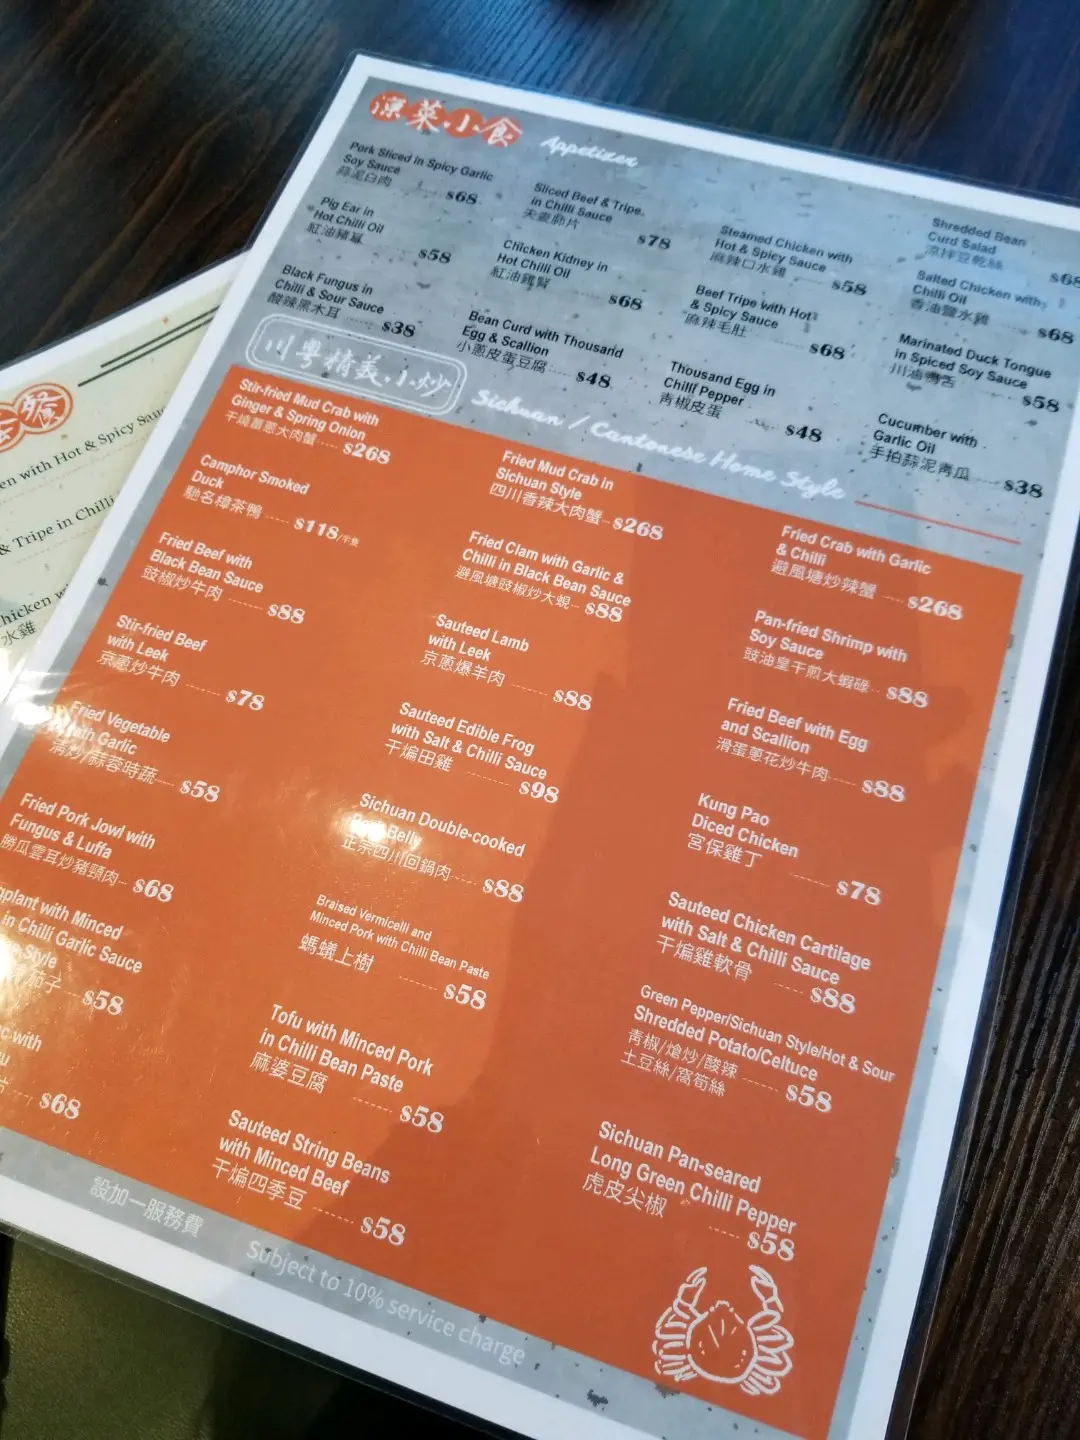 涼菜小食 Appetizer
Pork Sliced in Spicy Garlic
Soy Sauce
蒜泥白肉 $68
Pig Ear in
Hot Chilli Oil
紅油豬耳 $58
Black Fungus in
Chilli & Sour Sauce
酸辣黑木耳 $38
Sliced Beef & Tripe
in Chilli Sauce
夫妻肺片 $78
Chicken Kidney in
Hot Chilli Oil
紅油雞腎 $68
Bean Curd with Thousand
Egg & Scallion
小蔥皮蛋豆腐 $48
Steamed Chicken with
Hot & Spicy Sauce
麻辣口水雞 $58
Beef Tripe with Hot
& Spicy Sauce
麻辣毛肚 $68
Thousand Egg in
Chilli Pepper
青椒皮蛋 $48
Shredded Bean
Curd Salad
涼拌豆乾絲 $68
Salted Chicken with
Chilli Oil
香油鹽水雞 $68
Marinated Duck Tongue
in Spiced Soy Sauce
川滷鴨舌 $58
Cucumber with
Garlic Oil
手拍蒜泥青瓜 $38
川粵精美小炒
Sichuan / Cantonese Home Style
Stir-fried Mud Crab with
Ginger & Spring Onion
干燒薑蔥大肉蟹 $268
Camphor Smoked
Duck
馳名樟茶鴨 $118/半隻
Fried Beef with
Black Bean Sauce
豉椒炒牛肉 $88
Stir-fried Beef
with Leek
京蔥炒牛肉 $78
Fried Vegetable
with Garlic
清炒/蒜蓉時蔬 $58
Fried Pork Jowl with
Fungus & Luffa
勝瓜雲耳炒豬頸肉 $68
with Minced
in Chilli Garlic Sauce
Style
茄子 $58
with
$68
Fried Mud Crab in
Sichuan Style
四川香辣大肉蟹 $268
Fried Clam with Garlic &
Chilli in Black Bean Sauce
避風塘豉椒炒大蜆 $88
Sauteed Lamb
with Leek
京蔥爆羊肉 $88
Sauteed Edible Frog
with Salt & Chilli Sauce
干煸田雞 $98
Sichuan Double-cooked
Pork Belly
正宗四川回鍋肉 $88
Braised Vermicelli and
Minced Pork with Chilli Bean Paste
螞蟻上樹 $58
Tofu with Minced Pork
in Chilli Bean Paste
麻婆豆腐 $58
Sauteed String Beans
with Minced Beef
干煸四季豆 $58
Fried Crab with Garlic
& Chilli
避風塘炒辣蟹 $268
Pan-fried Shrimp with
Soy Sauce
豉油皇干煎大蝦碌 $88
Fried Beef with Egg
and Scallion
滑蛋蔥花炒牛肉 $88
Kung Pao
Diced Chicken
宮保雞丁 $78
Sauteed Chicken Cartilage
with Salt & Chilli Sauce
干煸雞軟骨 $88
Green Pepper/Sichuan Style/Hot & Sour
Shredded Potato/Celtuce
青椒/熗炒/酸辣
土豆絲/窩筍絲 $58
Sichuan Pan-seared
Long Green Chilli Pepper
虎皮尖椒 $58
設加一服務費
Subject to 10% service charge
with Hot & Spicy Sauce
& Tripe in Chilli
水雞